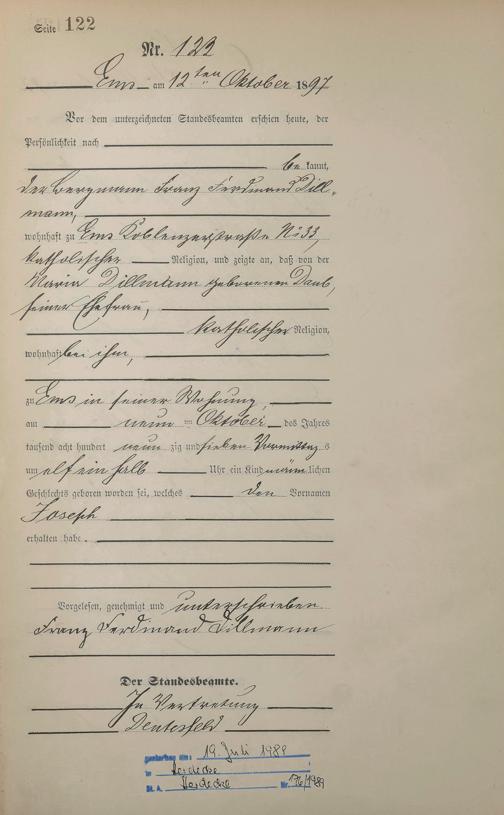 Seite 122
Nr. 122
Ems am 12ten Oktober 1897
Vor dem unterzeichneten Standesbeamten erschien heute, der
Persönlichkeit nach
be kannt,
der Bergmann Franz Ferdinand Dill-
mann,
wohnhaft zu Ems Koblenzerstraße No 33,
katholischer Religion, und zeigte an, daß von der
Maria Dillmann geborenen Daub,
seiner Ehefrau,
katholischer Religion,
wohnhaft bei ihm,
zu Ems in seiner Wohnung,
am neunten Oktober des Jahres
tausend acht hundert neun zig und sieben Vormittag s
um elf ein halb Uhr ein Kind männ lichen
Geschlechts geboren worden sei, welches den Vornamen
Joseph
erhalten habe.
Vorgelesen, genehmigt und unterschrieben
Franz Ferdinand Dillmann
Der Standesbeamte.
In Vertretung
gestorben am: 19. Juli 1989
in Herdecke
St. A. Herdecke Nr. 196/1989